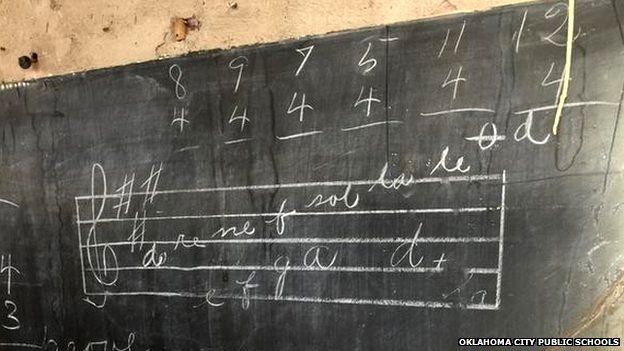 8 9 7 5 11 12
4 4 4 4 4 4
d
do re me f sol la te
e f g a d
4
3
OKLAHOMA CITY PUBLIC SCHOOLS